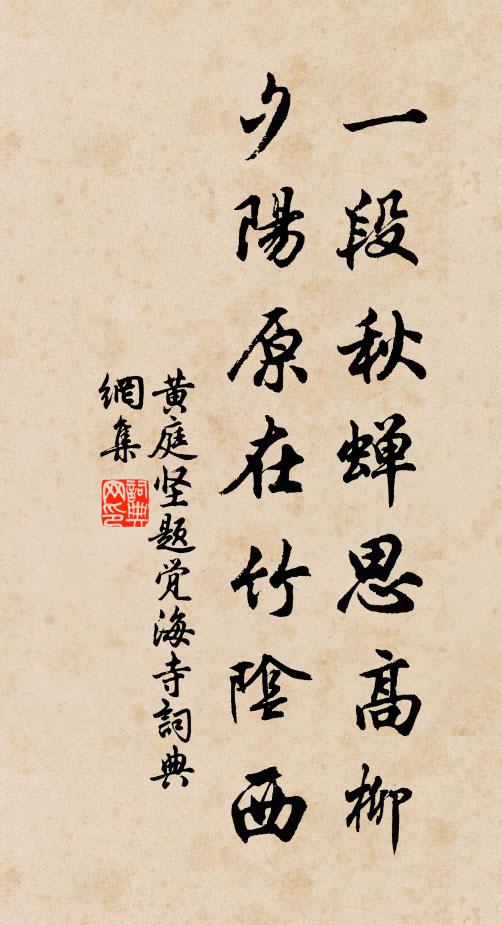 一段秋蝉思高柳
夕陽原在竹陰西
黄庭坚题觉海寺詞典
網集
詞典
网印